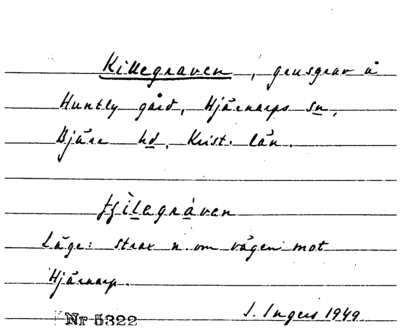 Killegraven, grusgrav å
Huntly gård, Hjärnarps sn,
Bjäre hd, Krist. län.
tjìlegràven
Läge: strax n. om vägen mot
Hjärnarp.
Nr 5322
I. Ingers 1949